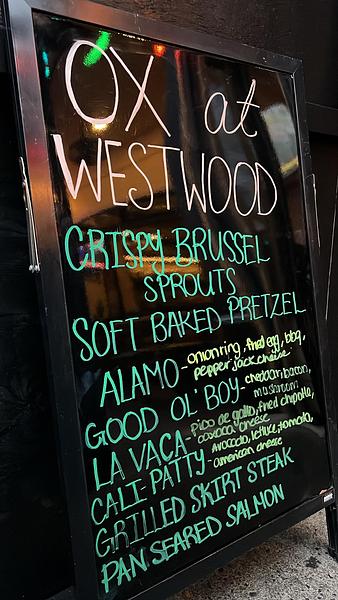 OX at
WESTWOOD
CRISPY BRUSSEL
SPROUTS
SOFT BAKED PRETZEL
ALAMO - onion ring, fried egg, bbq,
pepper jack cheese
GOOD OL' BOY - cheddar, bacon,
mushroom
LA VACA - pico de gallo, fried chipotle,
oaxaca cheese
CALI-PATTY - avocado, lettuce, tomato,
american cheese
GRILLED SKIRT STEAK
PAN SEARED SALMON